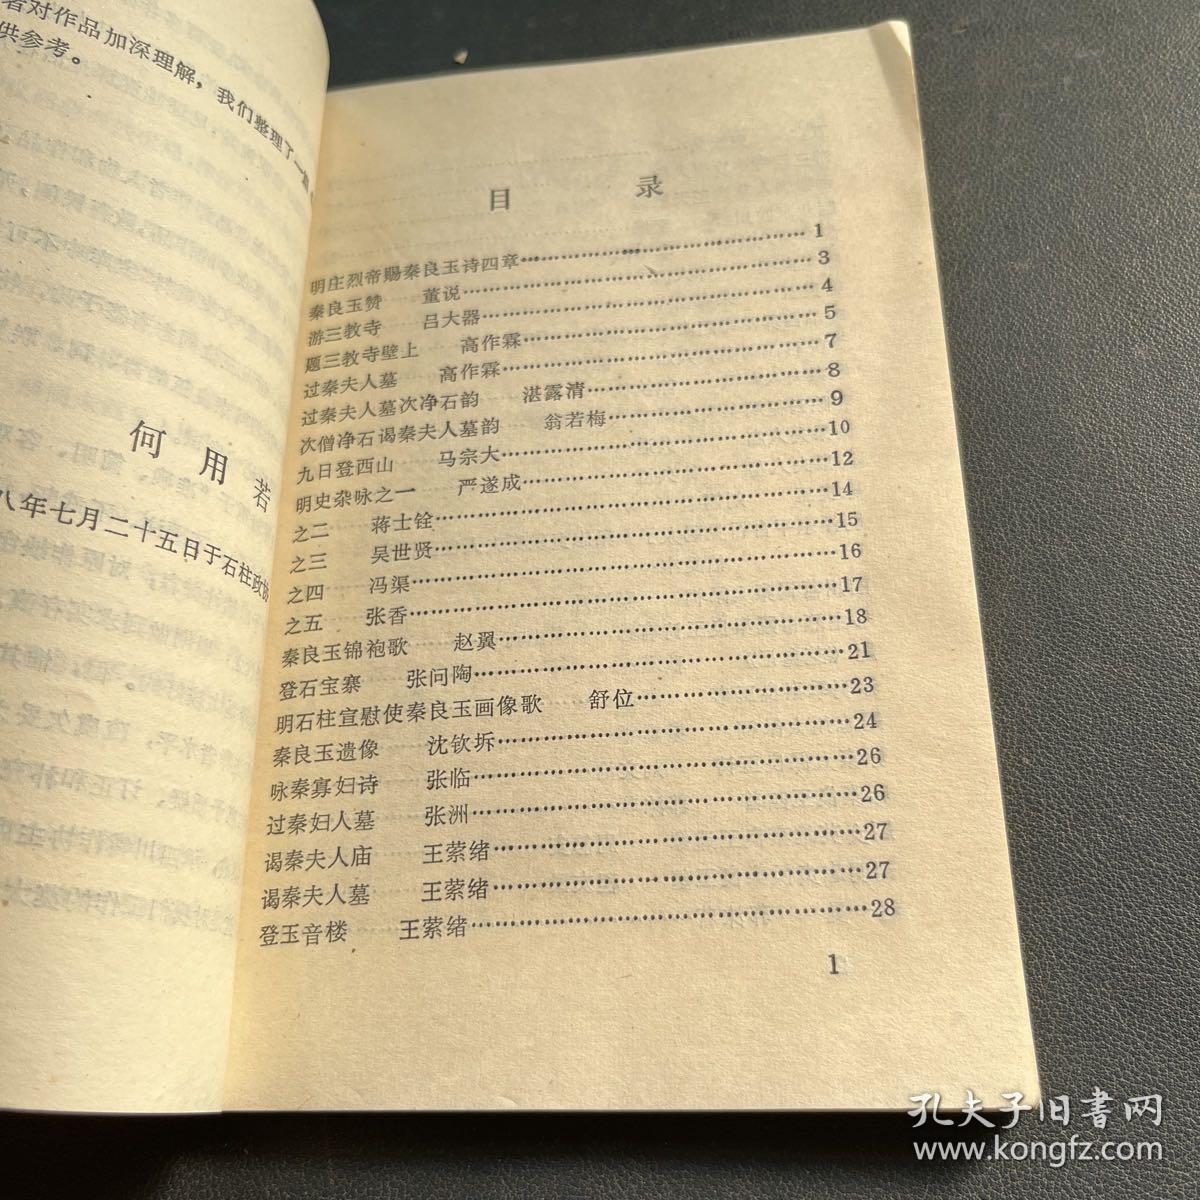 者对作品加深理解，我们整理了一
供参考。
何用若
八年七月二十五日于石柱政协
目录
明庄烈帝赐秦良玉诗四章……………………………………1
秦良玉赞 董说……………………………………3
游三教寺 吕大器……………………………………4
题三教寺壁上 高作霖……………………………………5
过秦夫人墓 高作霖……………………………………7
过秦夫人墓次净石韵 湛露清……………………………………8
次僧净石谒秦夫人墓韵 翁若梅……………………………………9
九日登西山 马宗大……………………………………10
明史杂咏之一 严遂成……………………………………12
之二 蒋士铨……………………………………14
之三 吴世贤……………………………………15
之四 冯渠……………………………………16
之五 张香……………………………………17
秦良玉锦袍歌 赵翼……………………………………18
登石宝寨 张问陶……………………………………21
明石柱宣慰使秦良玉画像歌 舒位……………………………………23
秦良玉遗像 沈钦圻……………………………………24
咏秦寡妇诗 张临……………………………………26
过秦妇人墓 张洲……………………………………26
谒秦夫人庙 王萦绪……………………………………27
谒秦夫人墓 王萦绪……………………………………27
登玉音楼 王萦绪……………………………………28
1
孔夫子旧书网
www.kongfz.com